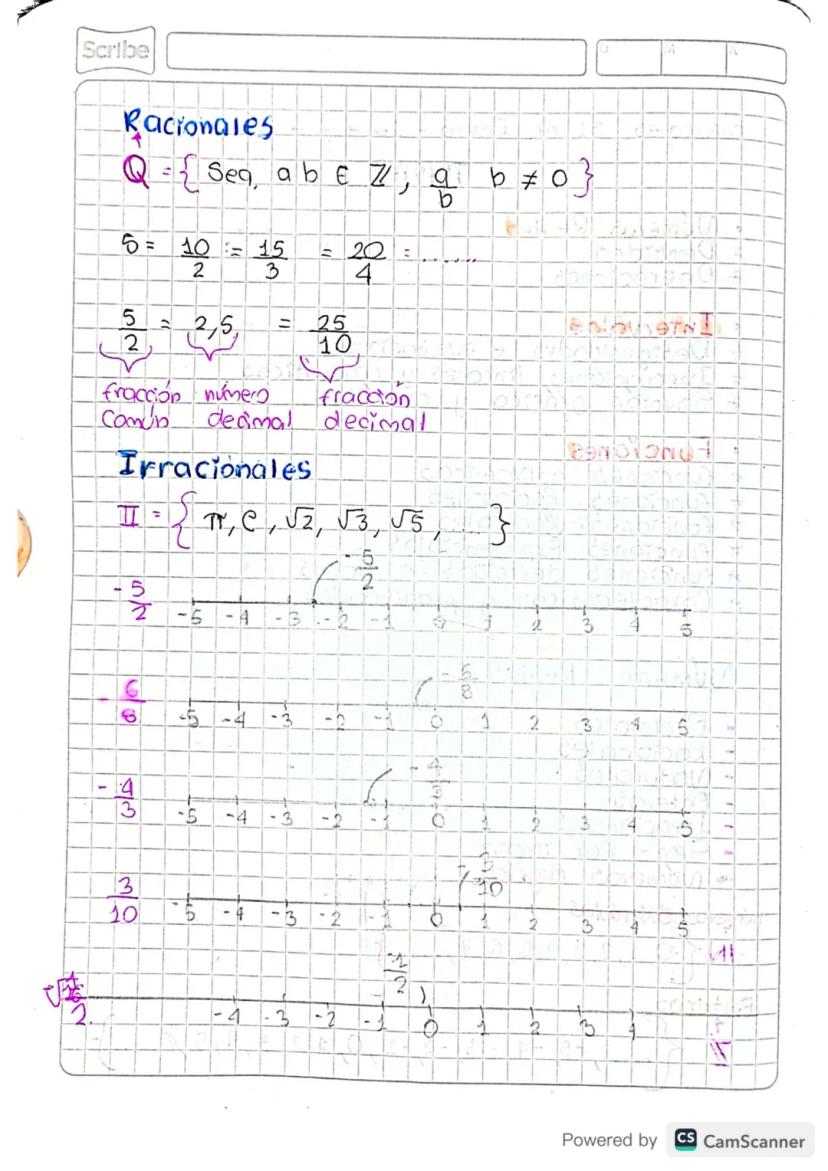 Scribe
Racionales
Q = { Sea, a b ∈ ℤ, a/b b ≠ 0 }
5 = 10/2 = 15/3 = 20/4 = ......
5/2 = 2,5 = 25/10
fracción número fracción
común decimal decimal
Irracionales
II = { π, e, √2, √3, √5, ... }
-5/2
-5/2 -5 -4 -3 -2 -1 0 1 2 3 4 5
-6/8
-6/8 -5 -4 -3 -2 -1 0 1 2 3 4 5
-4/3
-4/3 -5 -4 -3 -2 -1 0 1 2 3 4 5
3/10
3/10 -5 -4 -3 -2 -1 0 1 2 3 4 5
-1/2
2. -4 -3 -2 -1 0 1 2 3 4
Powered by CS CamScanner